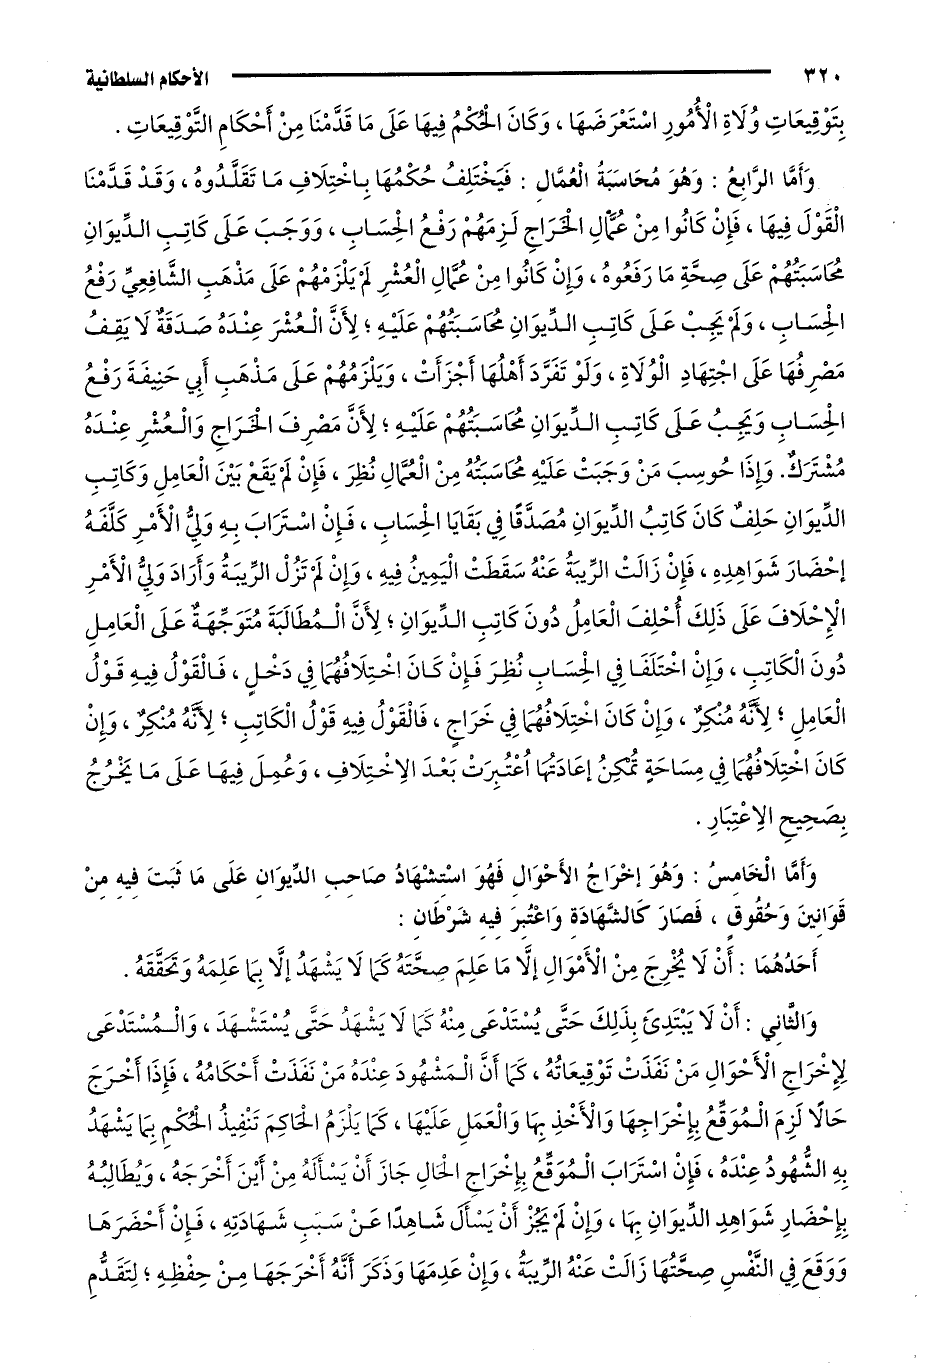 ٣٢٠ الأحكام السلطانية
بِتَوْقِيعَاتِ وُلَاةِ الْأُمُورِ اسْتَعْرَضَهَا ، وَكَانَ الْحُكْمُ فِيهَا عَلَى مَا قَدَّمْنَا مِنْ أَحْكَامِ التَّوْقِيعَاتِ .
وَأَمَّا الرَّابِعُ : وَهُوَ مُحَاسَبَةُ الْعُمَّالِ : فَيَخْتَلِفُ حُكْمُهَا بِاخْتِلَافِ مَا تَقَلَّدُوهُ ، وَقَدْ قَدَّمْنَا
الْقَوْلَ فِيهَا ، فَإِنْ كَانُوا مِنْ عُمَّالِ الْخَرَاجِ لَزِمَهُمْ رَفْعُ الْحِسَابِ ، وَوَجَبَ عَلَى كَاتِبِ الدِّيوَانِ
مُحَاسَبَتُهُمْ عَلَى صِحَّةِ مَا رَفَعُوهُ ، وَإِنْ كَانُوا مِنْ عُمَّالِ الْعُشْرِ لَمْ يَلْزَمْهُمْ عَلَى مَذْهَبِ الشَّافِعِيِّ رَفْعُ
الْحِسَابِ ، وَلَمْ يَجِبْ عَلَى كَاتِبِ الدِّيوَانِ مُحَاسَبَتُهُمْ عَلَيْهِ ؛ لِأَنَّ الْعُشْرَ عِنْدَهُ صَدَقَةٌ لَا يَقِفُ
مَصْرِفُهَا عَلَى اجْتِهَادِ الْوُلَاةِ ، وَلَوْ تَفَرَّدَ أَهْلُهَا أَجْزَأَتْ ، وَيَلْزَمُهُمْ عَلَى مَذْهَبِ أَبِي حَنِيفَةَ رَفْعُ
الْحِسَابِ وَيَجِبُ عَلَى كَاتِبِ الدِّيوَانِ مُحَاسَبَتُهُمْ عَلَيْهِ ؛ لِأَنَّ مَصْرِفَ الْخَرَاجِ وَالْعُشْرِ عِنْدَهُ
مُشْتَرَكٌ. وَإِذَا حُوسِبَ مَنْ وَجَبَتْ عَلَيْهِ مُحَاسَبَتُهُ مِنْ الْعُمَّالِ نُظِرَ ، فَإِنْ لَمْ يَقَعْ بَيْنَ الْعَامِلِ وَكَاتِبِ
الدِّيوَانِ حَلِفٌ كَانَ كَاتِبُ الدِّيوَانِ مُصَدَّقًا فِي بَقَايَا الْحِسَابِ ، فَإِنْ اسْتَرَابَ بِهِ وَلِيُّ الْأَمْرِ كَلَّفَهُ
إحْضَارَ شَوَاهِدِهِ ، فَإِنْ زَالَتْ الرِّيبَةُ عَنْهُ سَقَطَتْ الْيَمِينُ فِيهِ ، وَإِنْ لَمْ تَزُلْ الرِّيبَةُ وَأَرَادَ وَلِيُّ الْأَمْرِ
الْإِحْلَافَ عَلَى ذَلِكَ أُحْلِفَ الْعَامِلُ دُونَ كَاتِبِ الدِّيوَانِ ؛ لِأَنَّ الْمُطَالَبَةَ مُتَوَجِّهَةٌ عَلَى الْعَامِلِ
دُونَ الْكَاتِبِ ، وَإِنْ اخْتَلَفَا فِي الْحِسَابِ نُظِرَ فَإِنْ كَانَ اخْتِلَافُهُمَا فِي دَخْلٍ ، فَالْقَوْلُ فِيهِ قَوْلُ
الْعَامِلِ ؛ لِأَنَّهُ مُنْكِرٌ ، وَإِنْ كَانَ اخْتِلَافُهُمَا فِي خَرَاجٍ ، فَالْقَوْلُ فِيهِ قَوْلُ الْكَاتِبِ ؛ لِأَنَّهُ مُنْكِرٌ ، وَإِنْ
كَانَ اخْتِلَافُهُمَا فِي مِسَاحَةٍ تُمْكِنُ إعَادَتُهَا اُعْتُبِرَتْ بَعْدَ الِاخْتِلَافِ ، وَعُمِلَ فِيهَا عَلَى مَا يَخْرُجُ
بِصَحِيحِ الِاعْتِبَارِ .
وَأَمَّا الْخَامِسُ : وَهُوَ إخْرَاجُ الْأَحْوَالِ فَهُوَ اسْتِشْهَادُ صَاحِبِ الدِّيوَانِ عَلَى مَا ثَبَتَ فِيهِ مِنْ
قَوَانِينَ وَحُقُوقٍ ، فَصَارَ كَالشَّهَادَةِ وَاعْتُبِرَ فِيهِ شَرْطَانِ :
أَحَدُهُمَا : أَنْ لَا يُخْرِجَ مِنْ الْأَمْوَالِ إلَّا مَا عَلِمَ صِحَّتَهُ كَمَا لَا يَشْهَدُ إلَّا بِمَا عَلِمَهُ وَتَحَقَّقَهُ .
وَالثَّانِي : أَنْ لَا يَبْتَدِئَ بِذَلِكَ حَتَّى يُسْتَدْعَى مِنْهُ كَمَا لَا يَشْهَدُ حَتَّى يُسْتَشْهَدَ ، وَالْمُسْتَدْعَى
لِإِخْرَاجِ الْأَحْوَالِ مَنْ نَفَذَتْ تَوْقِيعَاتُهُ ، كَمَا أَنَّ الْمَشْهُودَ عِنْدَهُ مَنْ نَفَذَتْ أَحْكَامُهُ ، فَإِذَا أَخْرَجَ
حَالًا لَزِمَ الْمُوَقِّعُ بِإِخْرَاجِهَا وَالْأَخْذِ بِهَا وَالْعَمَلِ عَلَيْهَا ، كَمَا يَلْزَمُ الْحَاكِمَ تَنْفِيذُ الْحُكْمِ بِمَا يَشْهَدُ
بِهِ الشُّهُودُ عِنْدَهُ ، فَإِنْ اسْتَرَابَ الْمُوَقِّعُ بِإِخْرَاجِ الْحَالِ جَازَ أَنْ يَسْأَلَهُ مِنْ أَيْنَ أَخْرَجَهُ ، وَيُطَالِبُهُ
بِإِحْضَارِ شَوَاهِدِ الدِّيوَانِ بِهَا ، وَإِنْ لَمْ يَجُزْ أَنْ يَسْأَلَ شَاهِدًا عَنْ سَبَبِ شَهَادَتِهِ ، فَإِنْ أَحْضَرَهَا
وَوَقَعَ فِي النَّفْسِ صِحَّتُهَا زَالَتْ عَنْهُ الرِّيبَةُ ، وَإِنْ عَدِمَهَا وَذَكَرَ أَنَّهُ أَخْرَجَهَا مِنْ حِفْظِهِ ؛ لِتَقَدُّمِ